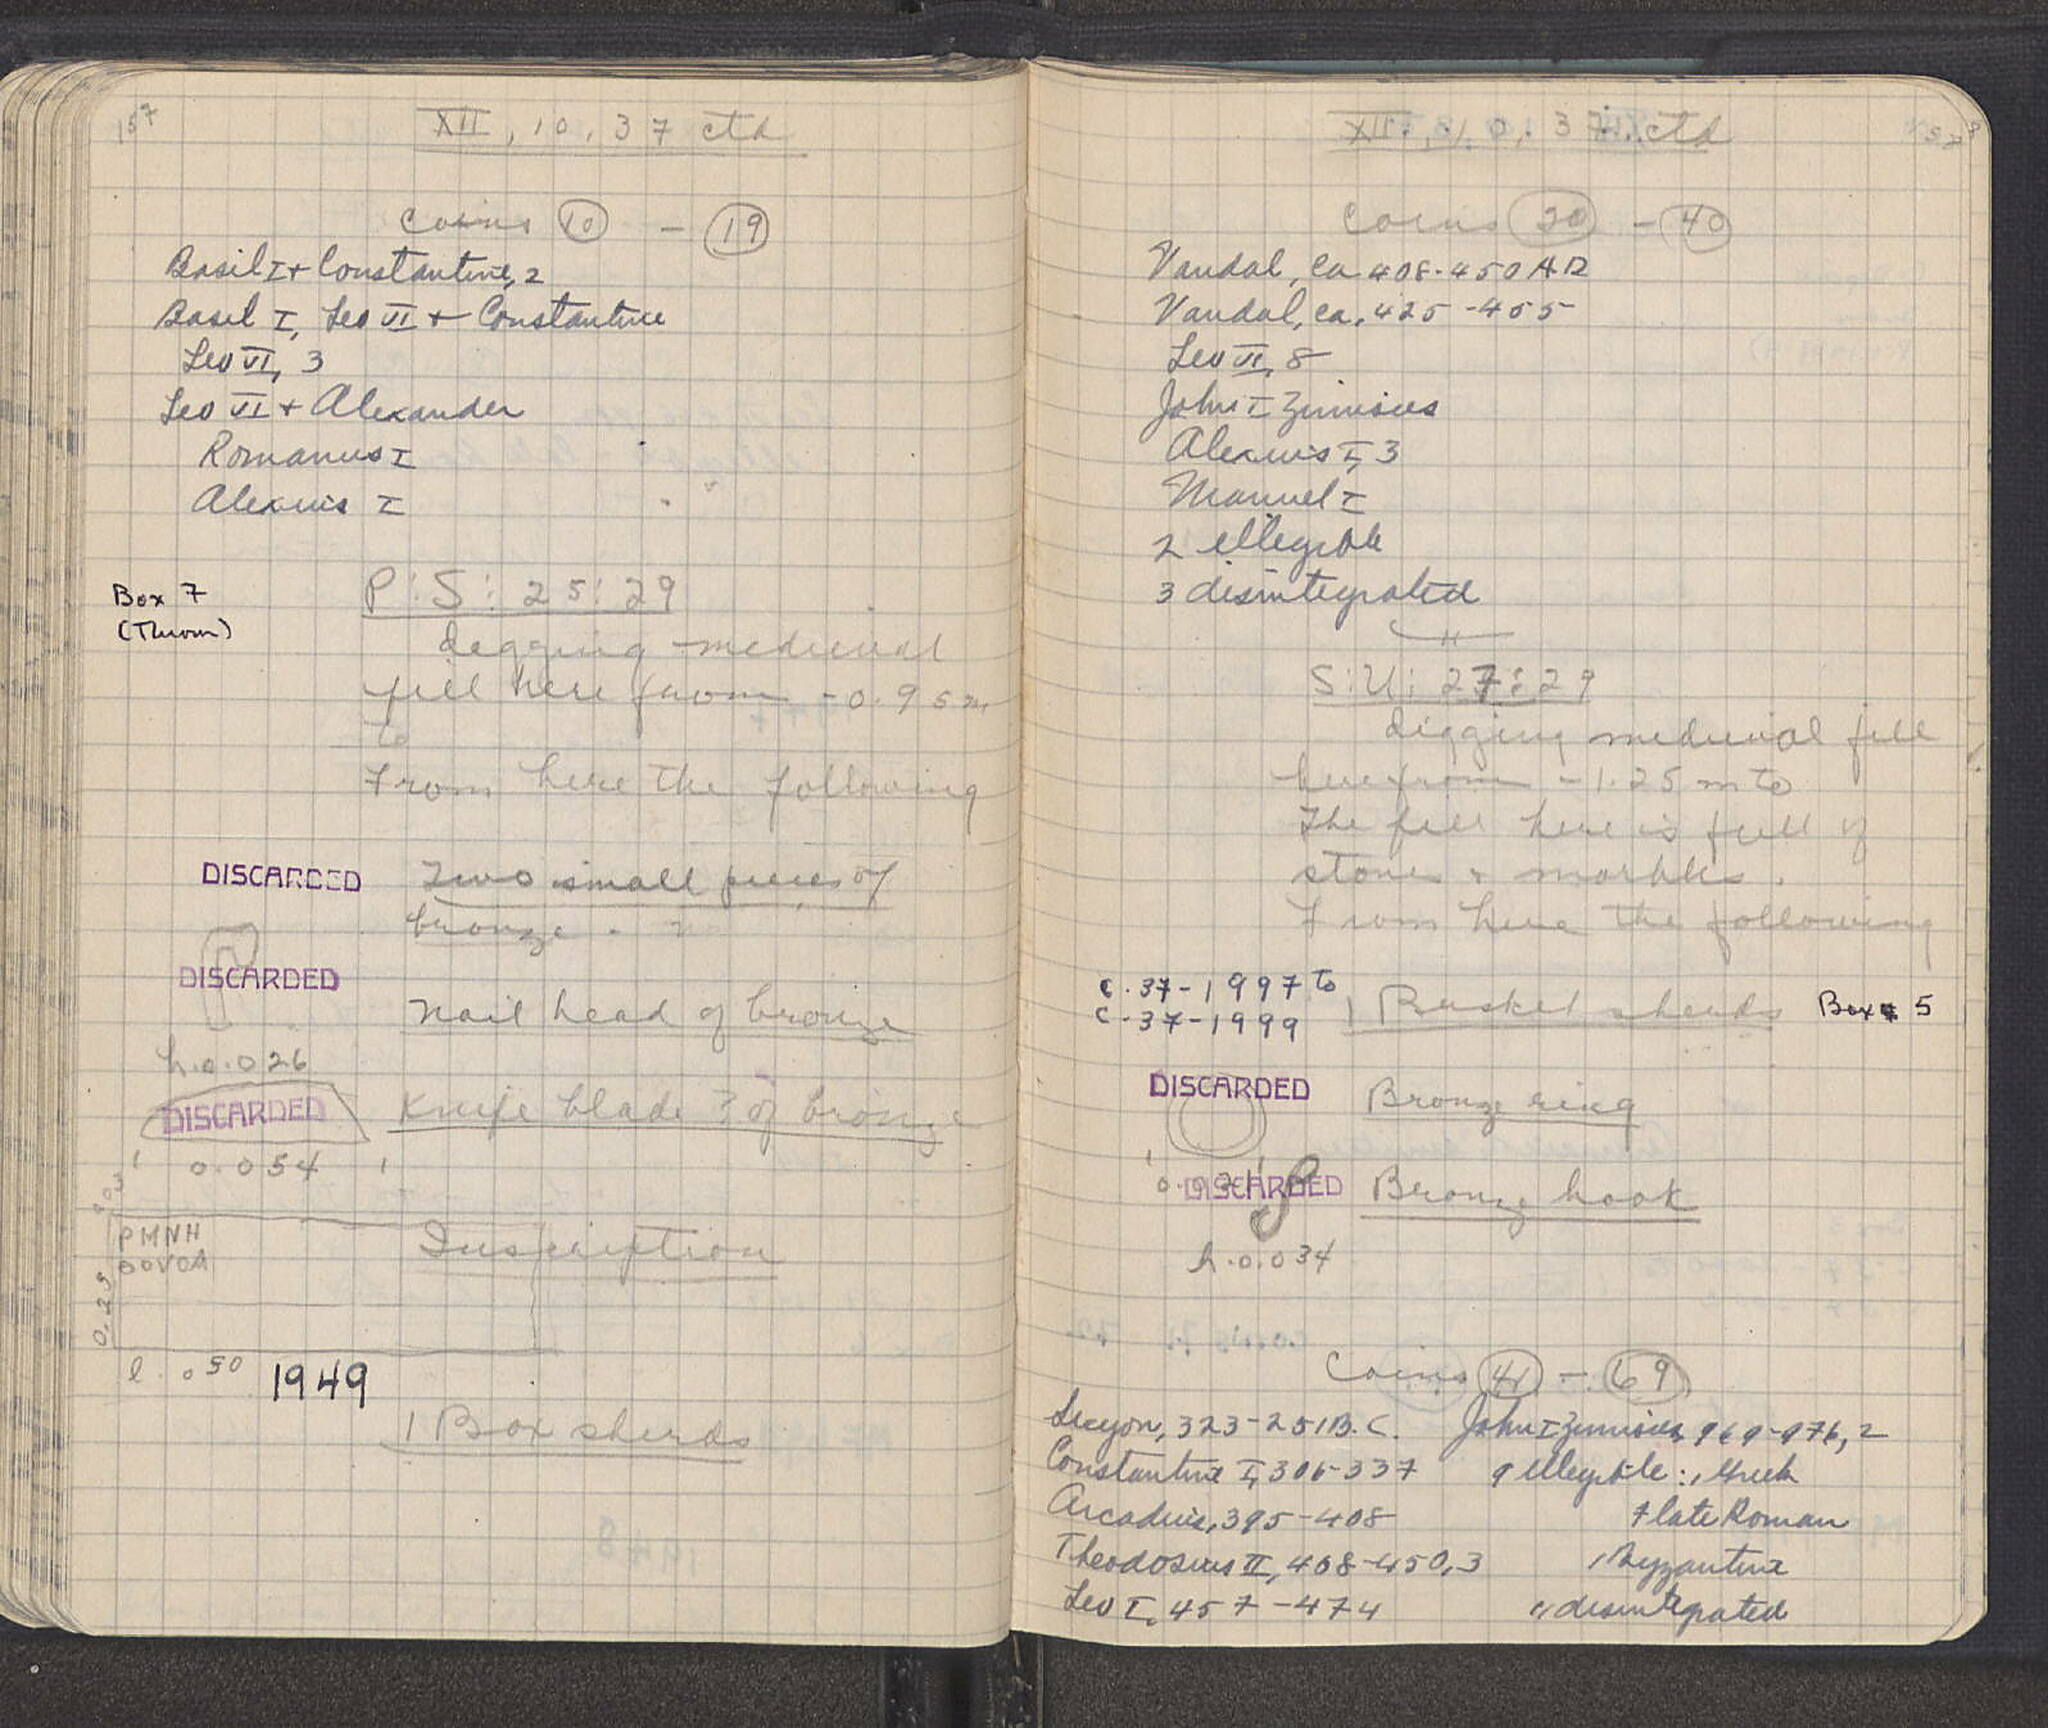 157
XII, 10, 37 ctd
Coins 10 - 19
Basil I + Constantine, 2
Basil I, Leo VI + Constantine
Leo VI, 3
Leo VI + Alexander
Romanus I
Alexius I
Box 7
(Throm)
P:S: 25:29
digging medieval
fill here from -0.95 m
to
From here the following
DISCARDED
Two small pieces of
bronze.
DISCARDED
Nail head of bronze
h.0.026
DISCARDED
Knife blade ? of bronze
0.054
0.03
PMNH
OOVOA
Inscription
0.23
l. 0.50
1949
1 Box sherds
158
XII, 10, 37 ctd
Coins 20 - 40
Vandal, ca 408-450 AD
Vandal, ca. 425-455
Leo VI, 8
John I Zimisces
Alexius I, 3
Manuel I
2 illegible
3 disintegrated
S:U: 27:29
digging medieval fill
here from -1.25 m to
The fill here is full of
stones + marbles.
From here the following
C-37-1997 to
C-37-1999
1 Basket sherds
Box 5
DISCARDED
Bronze ring
DISCARDED
Bronze hook
h.0.034
Coins 41 - 69
Sicyon, 323-251 B.C.
Constantine I, 306-337
Arcadius, 395-408
Theodosius II, 408-450, 3
Leo I, 457-474
John I Zimisces, 969-976, 2
9 illegible: 1 Greek
7 late Roman
1 Byzantine
11 disintegrated